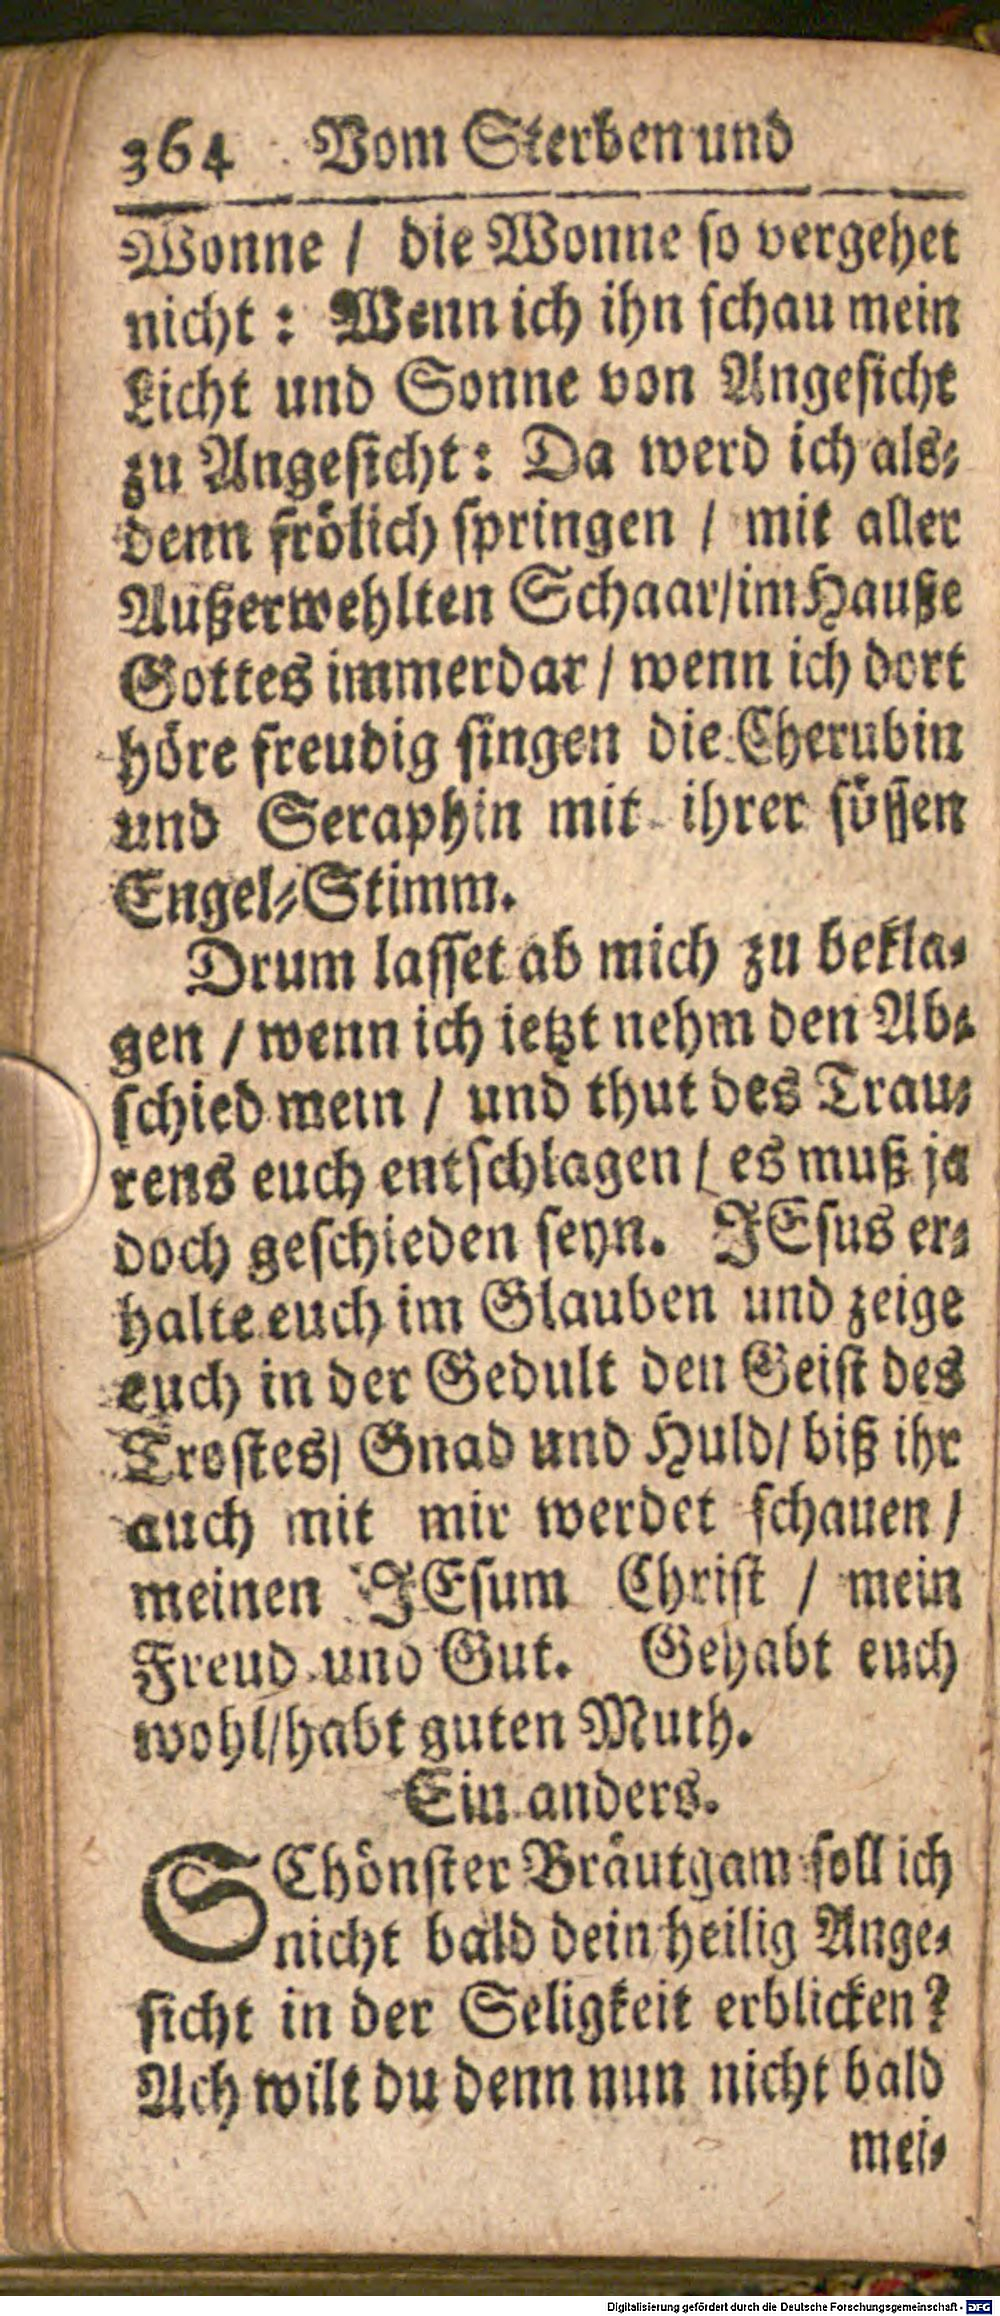 364 Vom Sterben und
Wonne / die Wonne so vergehet
nicht: Wenn ich ihn schau mein
Licht und Sonne von Angesicht
zu Angesicht: Da werd ich als-
denn frölich springen / mit aller
Außerwehlten Schaar/im Hauße
Gottes immerdar / wenn ich dort
höre freudig singen die Cherubin
und Seraphin mit ihrer süssen
Engel-Stimm.
Drum lasset ab mich zu bekla-
gen / wenn ich ietzt nehm den Ab-
schied mein / und thut des Trau-
rens euch entschlagen / es muß ja
doch geschieden seyn. JEsus er-
halte euch im Glauben und zeige
euch in der Gedult den Geist des
Trostes/ Gnad und Huld/ biß ihr
auch mit mir werdet schauen /
meinen JEsum Christ / mein
Freud und Gut. Gehabt euch
wohl/habt guten Muth.
Ein anders.
SChönster Bräutgam soll ich
nicht bald dein heilig Ange-
sicht in der Seligkeit erblicken?
Ach wilt du denn nun nicht bald
mei-
Digitalisierung gefördert durch die Deutsche Forschungsgemeinschaft - DFG